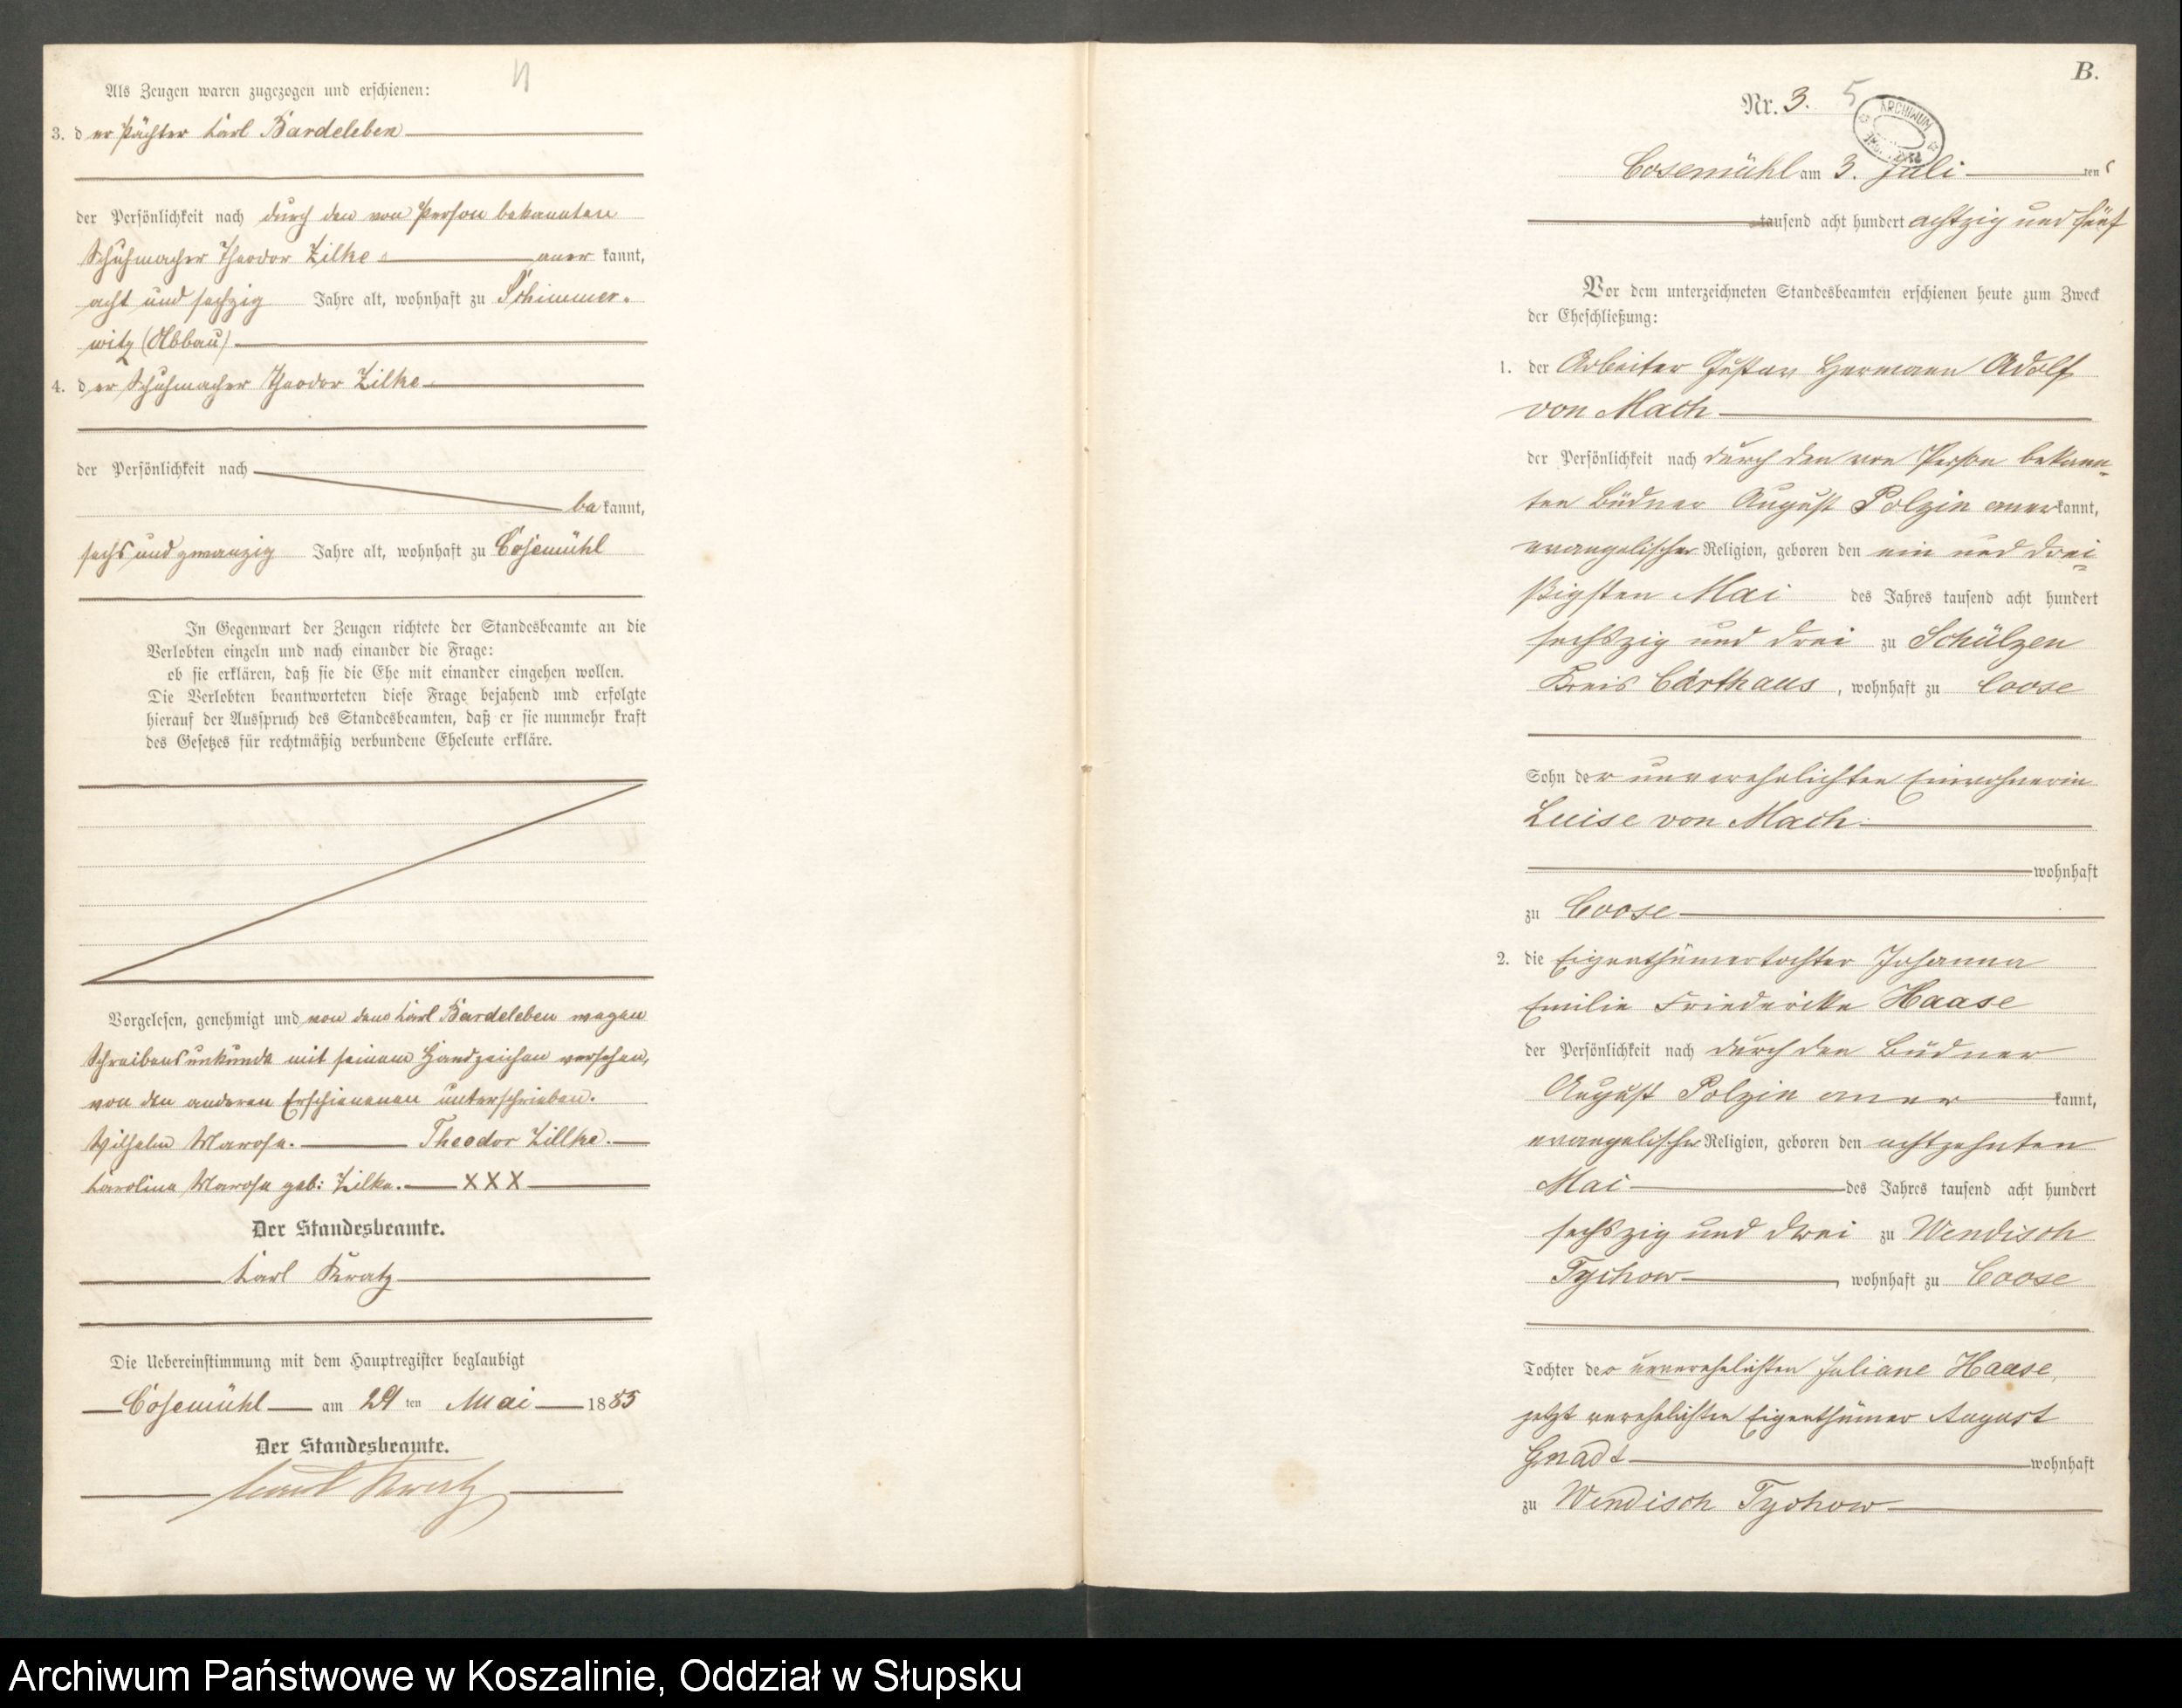 Als Zeugen waren zugezogen und erschienen:
3. der Pächter Karl Bardeleben
der Persönlichkeit nach durch den von Person bekannten
Schuhmacher Theodor Zilke aner kannt,
acht und sechzig Jahre alt, wohnhaft zu Schimmer-
witz (Abbau)
4. der Schuhmacher Theodor Zilke
der Persönlichkeit nach
be kannt,
sechs und zwanzig Jahre alt, wohnhaft zu Cosemühl
In Gegenwart der Zeugen richtete der Standesbeamte an die
Verlobten einzeln und nach einander die Frage:
ob sie erklären, daß sie die Ehe mit einander eingehen wollen.
Die Verlobten beantworteten diese Frage bejahend und erfolgte
hierauf der Ausspruch des Standesbeamten, daß er sie nunmehr kraft
des Gesetzes für rechtmäßig verbundene Eheleute erkläre.
Vorgelesen, genehmigt und von dem Karl Bardeleben wegen
Schreibensunkunde mit seinem Handzeichen versehen,
von den anderen Erschienenen unterschrieben.
Wilhelm Marose. Theodor Zillke.
Karoline Marose geb: Zilke. XXX
Der Standesbeamte.
Karl Kratz
Die Uebereinstimmung mit dem Hauptregister beglaubigt
Cosemühl am 29 ten Mai 1885
Der Standesbeamte.
Karl Kratz
B.
Nr. 3. 5
ARCHIWUM
Cosemühl am 3. Juli ten
tausend acht hundert achtzig und fünf
Vor dem unterzeichneten Standesbeamten erschienen heute zum Zweck
der Eheschließung:
1. der Arbeiter Gustav Hermann Adolf
von Mach
der Persönlichkeit nach durch den von Person bekann-
ten Büdner August Polzin anerkannt,
evangelischer Religion, geboren den ein und drei-
ßigsten Mai des Jahres tausend acht hundert
sechszig und drei zu Schülzen
Kreis Carthaus, wohnhaft zu Coose
Sohn der unverehelichten Einwohnerin
Luise von Mach
wohnhaft
zu Coose
2. die Eigenthümertochter Johanna
Emilie Friedericke Haase
der Persönlichkeit nach durch den Büdner
August Polzin aner kannt,
evangelischer Religion, geboren den achtzehnten
Mai des Jahres tausend acht hundert
sechszig und drei zu Wendisch
Tychow, wohnhaft zu Coose
Tochter der unverehelichten Juliane Haase,
jetzt verehelichten Eigenthümer August
Gnadt wohnhaft
zu Wendisch Tychow
Archiwum Państwowe w Koszalinie, Oddział w Słupsku